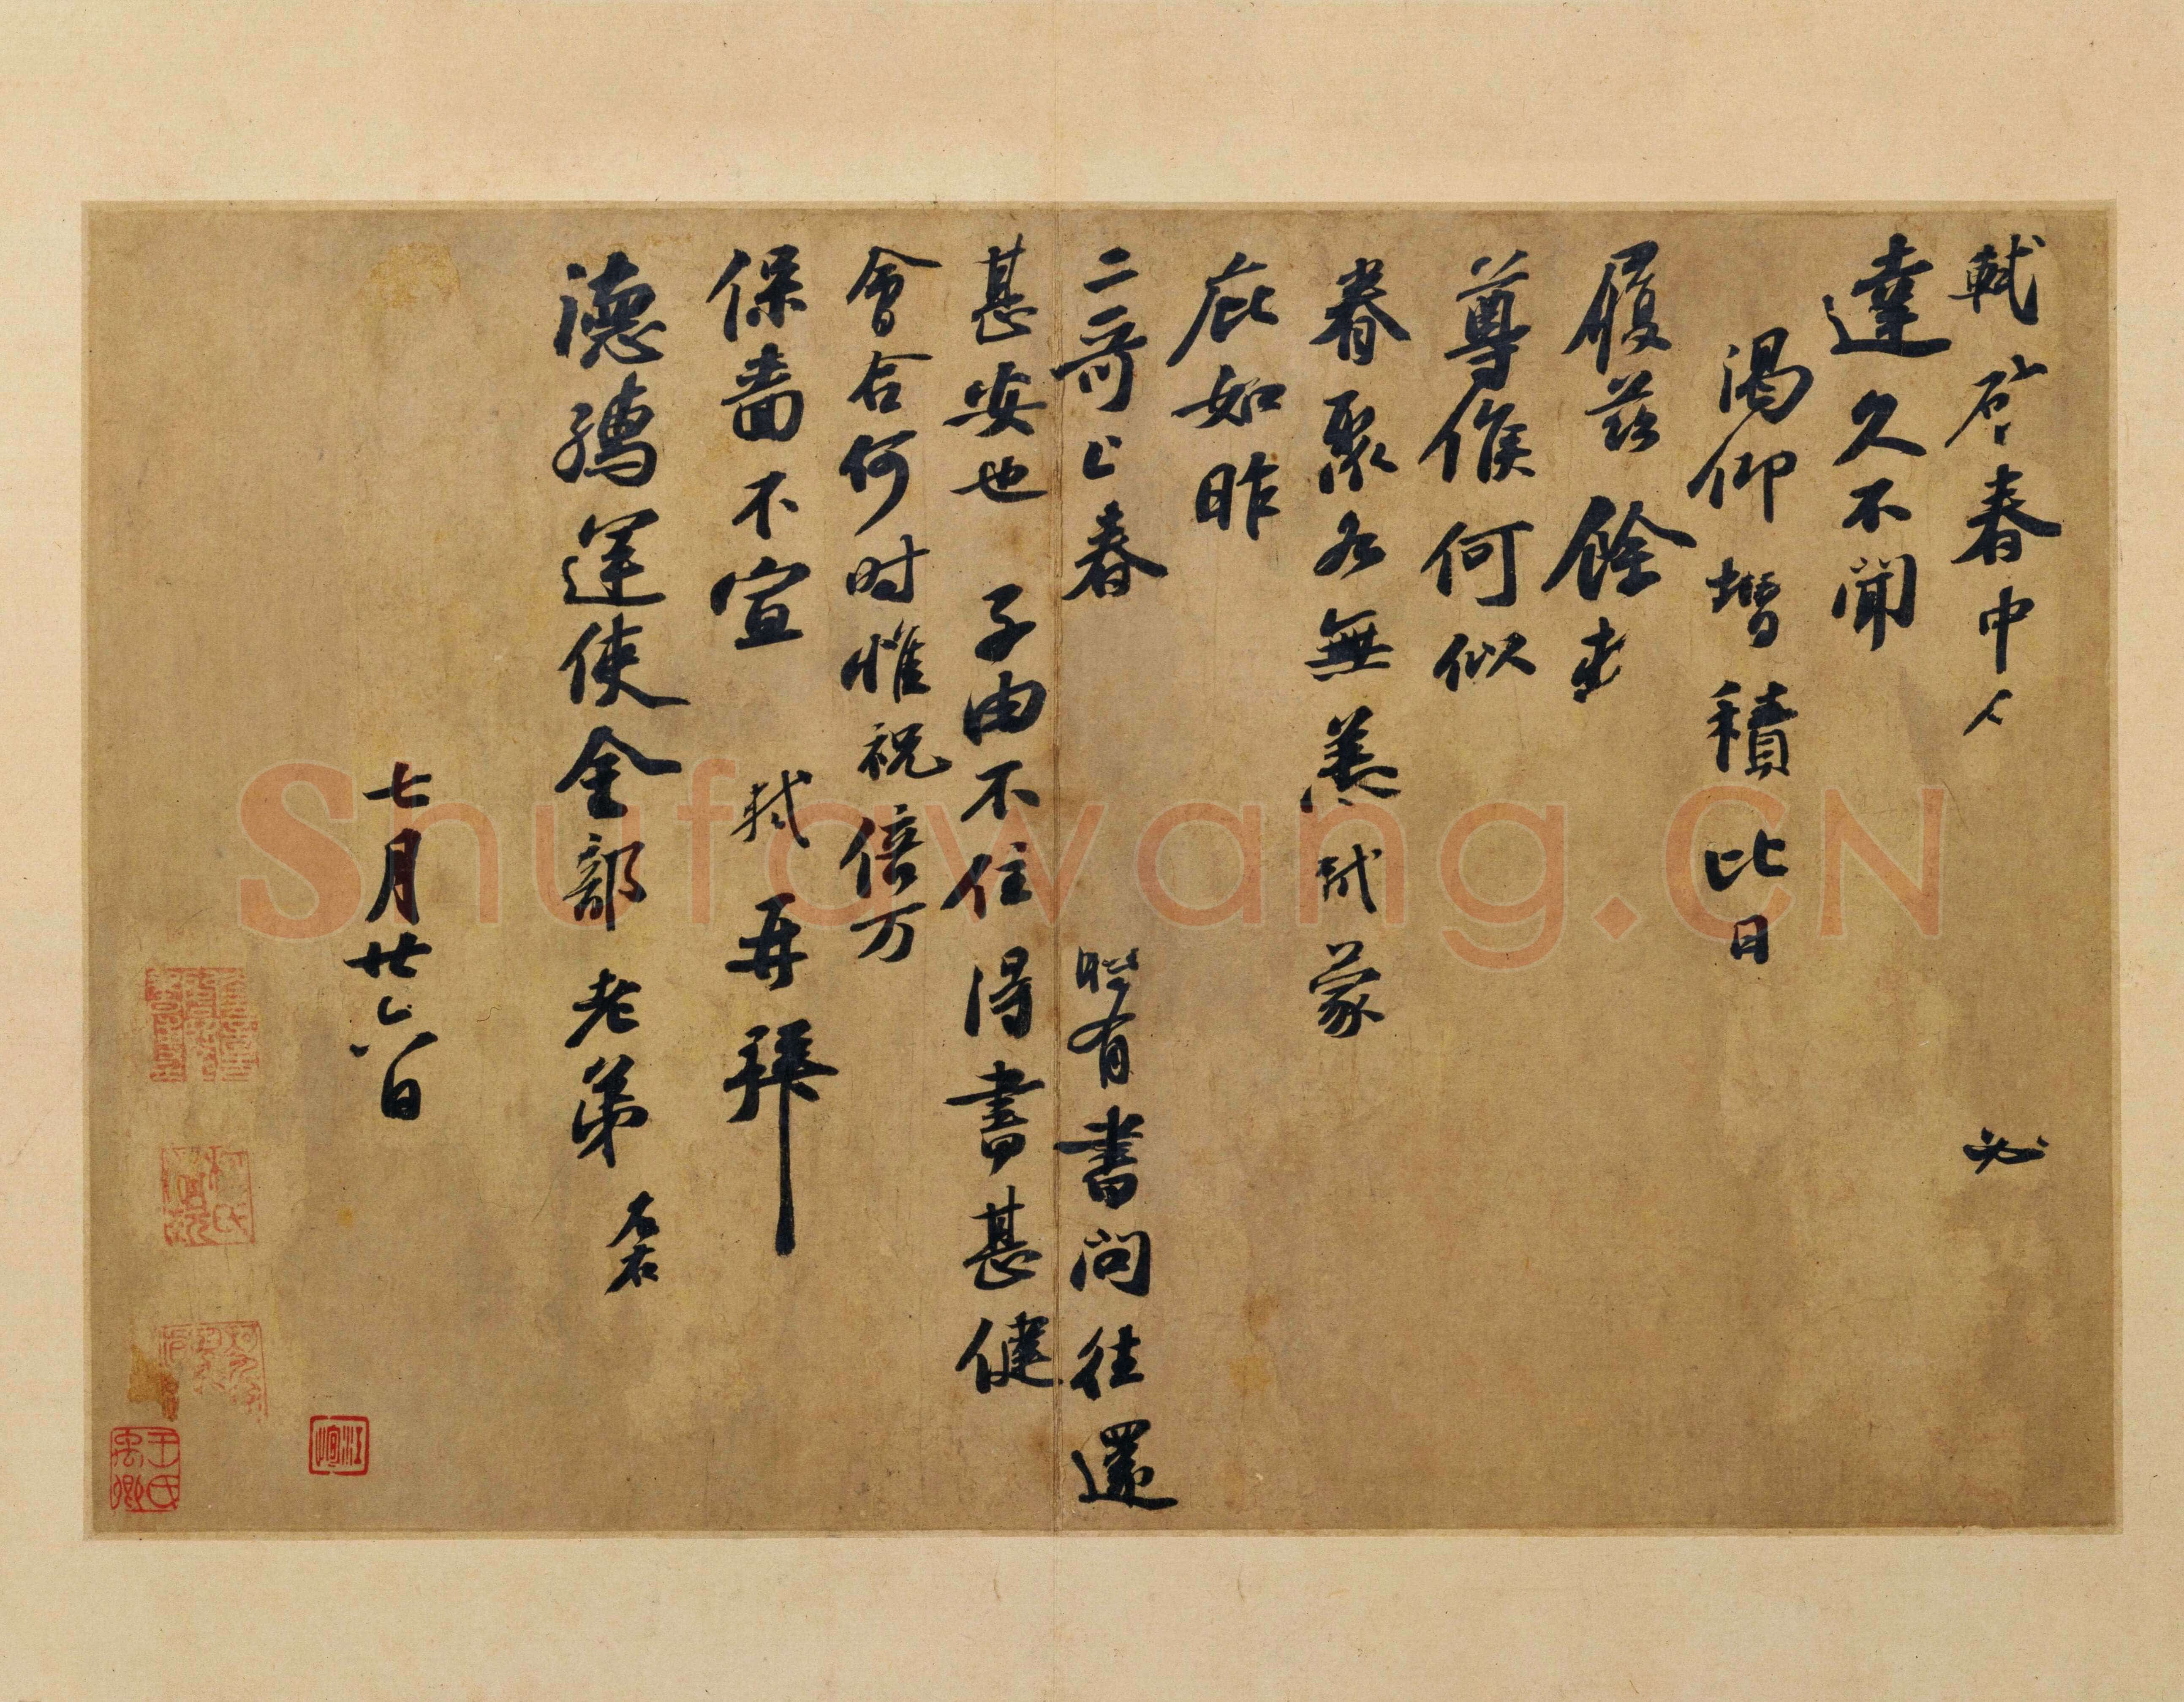 軾啓春中 必
達久不聞
渴仰增積比日
履茲餘
尊候何似
眷聚各無恙軾蒙
庇如昨
二哥上春 時有書問往還
甚安也 子由不住得書甚健
會合何时惟祝倍万
保嗇不宣 軾再拜
德孺運使金部老弟 左右
七月廿六日
江恂
王氏禹卿
Shufawang.CN